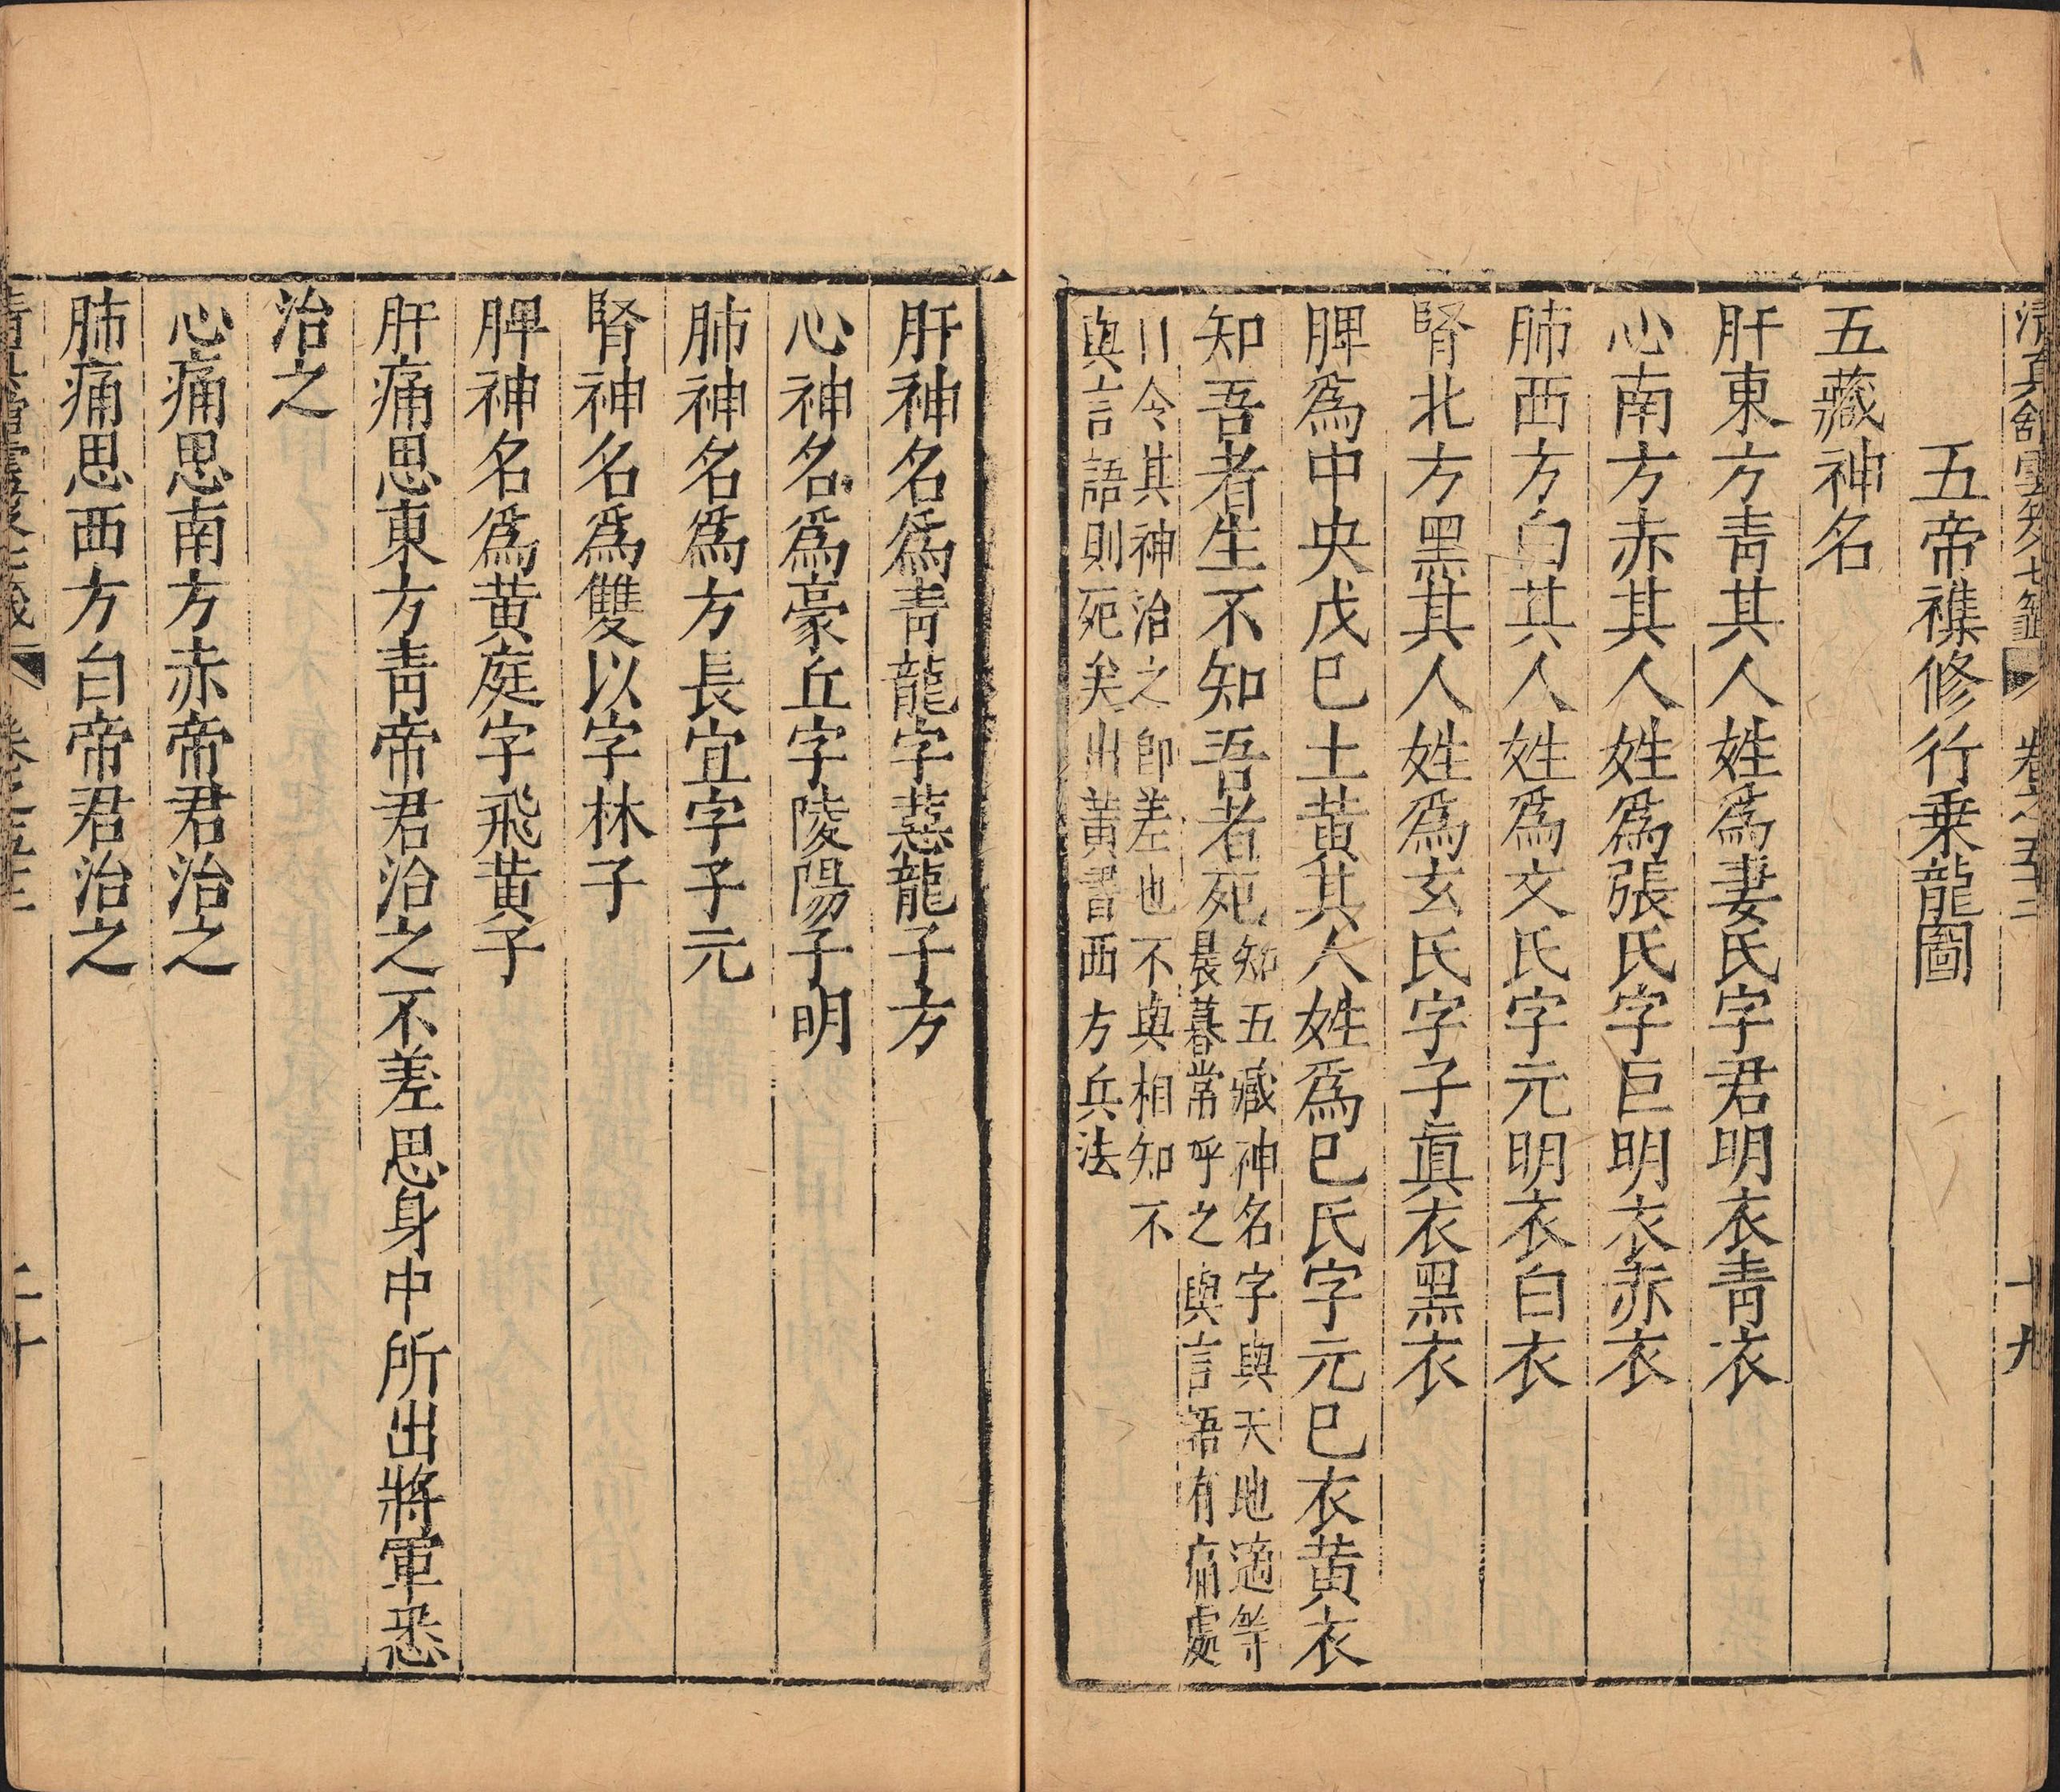 五帝襍修行乗龍圖
五藏神名
肝東方青其人姓爲妻氏字君明衣青衣
心南方赤其人姓爲張氏字巨明衣赤衣
肺西方白其人姓爲文氏字元明衣白衣
腎北方黑其人姓爲玄氏字子眞衣黑衣
脾爲中央戊巳土黄其人姓爲巳氏字元巳衣黄衣
知吾者生不知吾者死知五臧神名字與天地適等
晨暮常呼之與言語有痛處
令其神治之卽差也不與相知不
與言語則死矣出黄書西方兵法
肝神名爲青龍字蓋龍子方
心神名爲豪丘字陵陽子明
肺神名爲方長宜字子元
腎神名爲雙以字林子
脾神名爲黄庭字飛黄子
肝痛思東方青帝君治之不差思身中所出將軍悉
治之
心痛思南方赤帝君治之
肺痛思西方白帝君治之